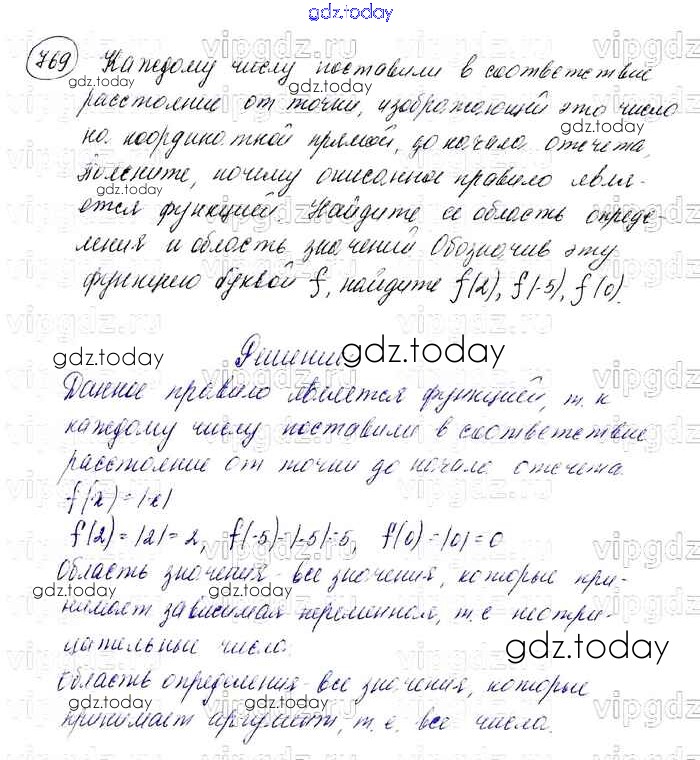 gdz.today
769 Каждому числу поставили в соответствие
расстояние от точки, изображающей это число
на координатной прямой, до начала отсчета.
Поясните, почему описанное правило явля-
ется функцией. Найдите ее область опреде-
ления и область значений. Обозначив эту
функцию буквой f, найдите f(2), f(-5), f(0).
Решение
gdz.today
gdz.today
Данное правило является функцией, т. к
каждому числу поставили в соответствие
расстояние от точки до начала отсчета.
f(x) = |x|
f(2) = |2| = 2, f(-5) = |-5| = 5, f(0) = |0| = 0
Область значения - все значения, которые при-
нимает зависимая переменная, т. е неотри-
цательные числа.
gdz.today
Область определения - все значения, которые
принимает аргумент, т. е. все числа.